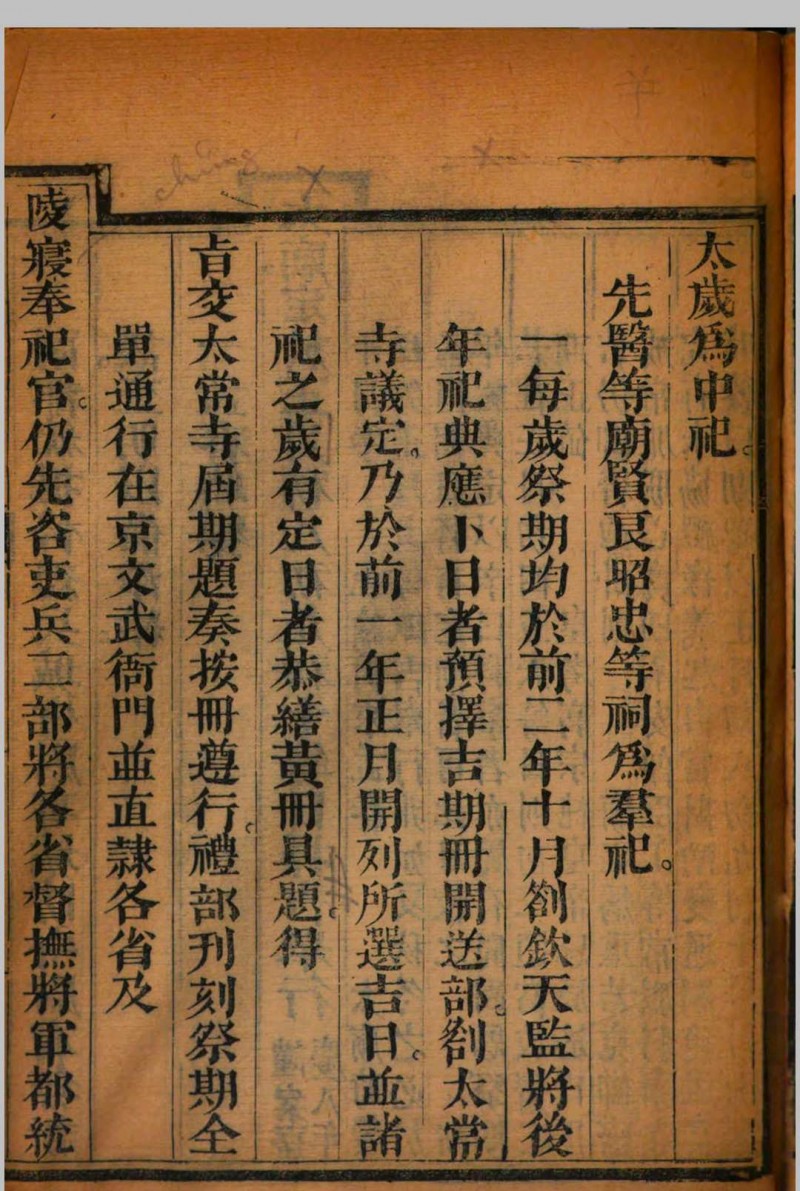 太歲爲中祀。
先醫等廟賢良昭忠等祠爲羣祀。
一每歲祭期均於前二年十月劄欽天監將後
年祀典應卜日者預擇吉期冊開送部。劄太常
寺議定。乃於前一年正月開列所選吉日。並諸
祀之歲有定日者恭繕黃冊具題。得
㫖交太常寺屆期題奏按冊遵行。禮部刋刻祭期全
單通行在京文武衙門並直隸各省及
陵寢奉祀官。仍先咨吏兵二部將各省督撫將軍都統